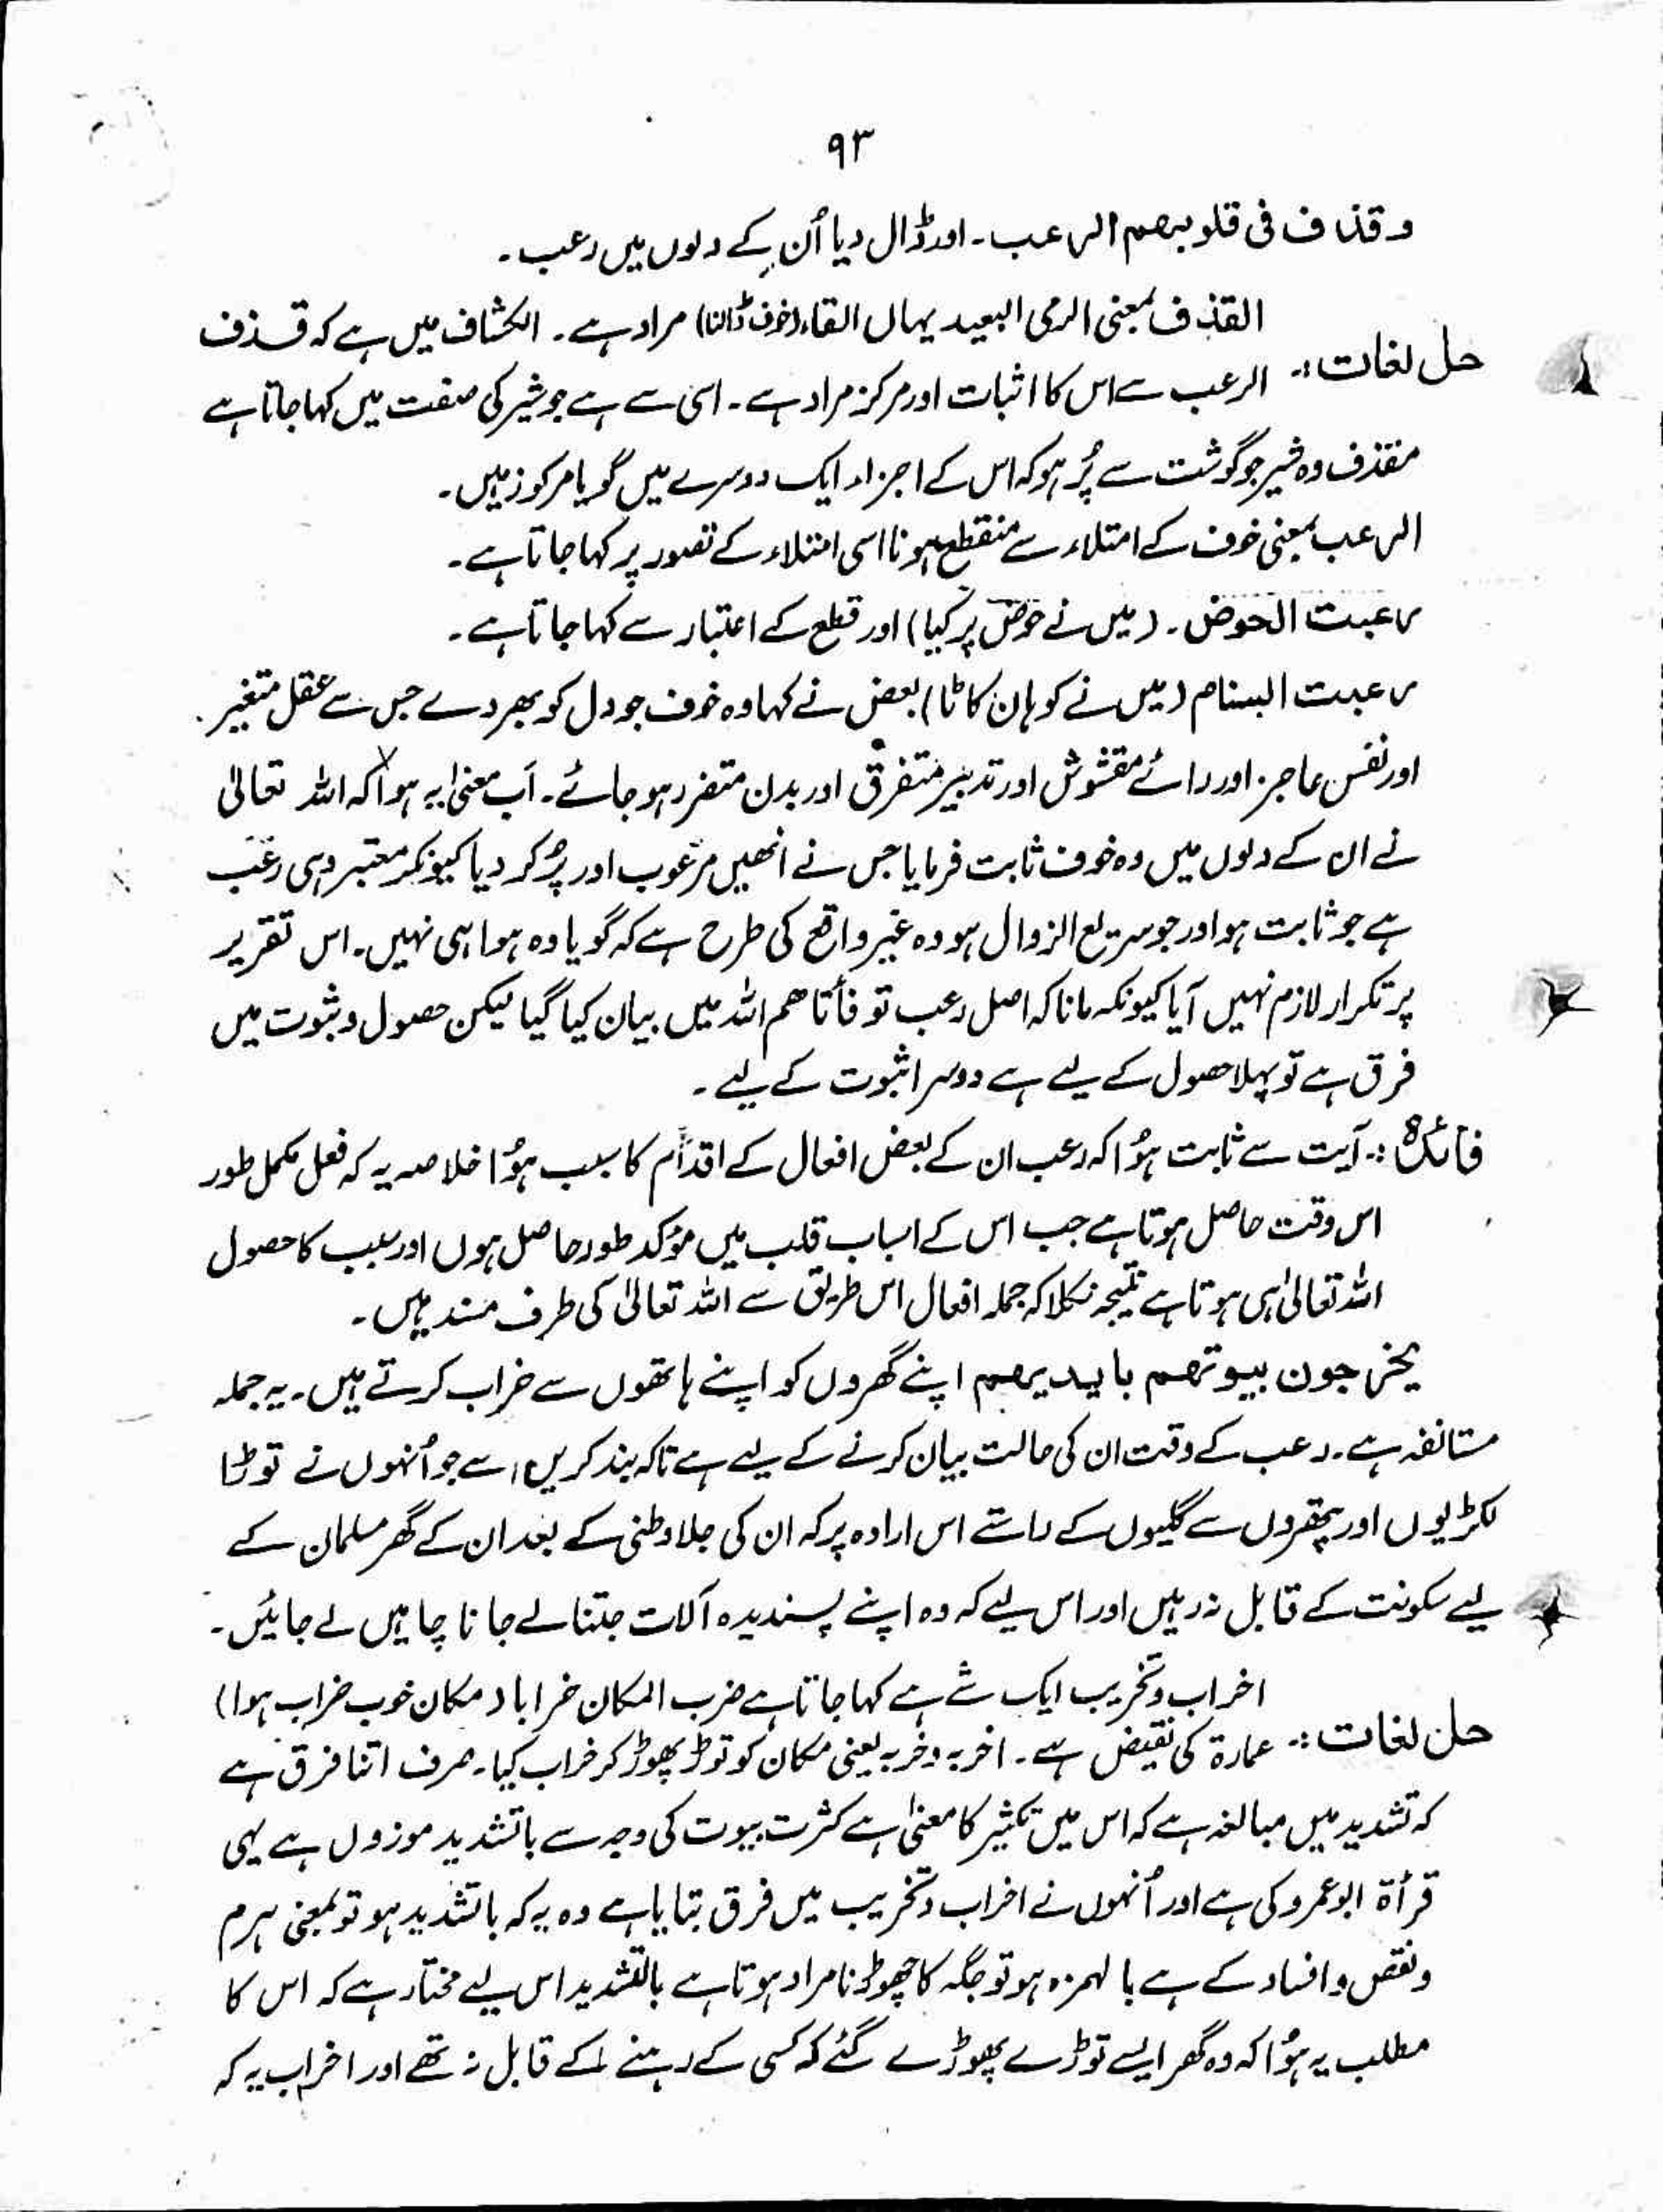 ۹۳
وقذف فی قلوبھم الرعب۔ اور ڈال دیا اُن کے دلوں میں رعب۔
القذف بمعنی الرمی البعید یہاں القاء (خوف ڈالنا) مراد ہے۔ الکشاف میں ہے کہ قذف
حل لغات :۔ الرعب سے اس کا اثبات اور مرکز مراد ہے۔ اسی سے ہے جو شیر کی صفت میں کہا جاتا ہے
مقذف وہ شیر جو گوشت سے پُر ہو کہ اس کے اجزاء ایک دوسرے میں گویا مرکوز ہیں۔
الرعب بمعنی خوف کے امتلاء سے منقطع ہونا اسی امتلاء کے تصور پر کہا جاتا ہے۔
رعبت الحوض۔ (میں نے حوض پر کیا) اور قطع کے اعتبار سے کہا جاتا ہے۔
رعبت السنام (میں نے کوہان کاٹا) بعض نے کہا وہ خوف جو دل کو بھر دے جس سے عقل متغیر
اور نفس عاجز اور رائے مقشوش اور تدبیر متفرق اور بدن متضرر ہو جائے۔ اَب معنیٰ یہ ہوا کہ اللہ تعالیٰ
نے ان کے دلوں میں وہ خوف ثابت فرمایا جس نے انھیں مرعوب اور پُر کر دیا کیونکہ معتبر وہی رعب
ہے جو ثابت ہو اور جو سریع الزوال ہو وہ غیر واقع کی طرح ہے کہ گویا وہ ہوا ہی نہیں۔ اس تقریر
پر تکرار لازم نہیں آیا کیونکہ مانا کہ اصل رعب تو فأتاھم اللہ میں بیان کیا گیا لیکن حصول و ثبوت میں
فرق ہے تو پہلا حصول کے لیے ہے دوسرا ثبوت کے لیے۔
فائدہ :۔ آیت سے ثابت ہوُا کہ رعب ان کے بعض افعال کے اقدام کا سبب ہوُا خلاصہ یہ کہ فعل مکمل طور
اس وقت حاصل ہوتا ہے جب اس کے اسباب قلب میں مؤکد طور حاصل ہوں اور سبب کا حصول
اللہ تعالیٰ ہی ہوتا ہے نتیجہ نکلا کہ جملہ افعال اس طریق سے اللہ تعالیٰ کی طرف مسند ہیں۔
یخرجون بیوتھم بایدیھم اپنے گھروں کو اپنے ہاتھوں سے خراب کرتے ہیں۔ یہ جملہ
مستانفہ ہے۔ رعب کے وقت ان کی حالت بیان کرنے کے لیے ہے تاکہ بند کریں اسے جو اُنہوں نے توڑا
لکڑیوں اور پتھروں سے گلیوں کے راستے اس ارادہ پر کہ ان کی جلاوطنی کے بعد ان کے گھر مسلمان کے
لیے سکونت کے قابل نہ رہیں اور اس لیے کہ وہ اپنے پسندیدہ آلات جتنا لے جانا چاہیں لے جائیں۔
اخراب و تخریب ایک شے ہے کہا جاتا ہے ضرب المکان خرابا د مکان خوب خراب ہوا)
حل لغات :۔ عمارۃ کی نقیض ہے۔ اخربہ وخربہ یعنی مکان کو توڑ پھوڑ کر خراب کیا۔ صرف اتنا فرق ہے
کہ تشدید میں مبالغہ ہے کہ اس میں تکثیر کا معنیٰ ہے کثرت بیوت کی وجہ سے باتشدید موزوں ہے یہی
قرأۃ ابوعمرو کی ہے اور اُنہوں نے اخراب و تخریب میں فرق بتایا ہے وہ یہ کہ باتشدید ہو تو بمعنی ہرم
ونقص و افساد کے ہے با لہمزہ ہو تو جگہ کا چھوڑنا مراد ہوتا ہے بالتشدید اس لیے مختار ہے کہ اس کا
مطلب یہ ہوُا کہ وہ گھر ایسے توڑے پھوڑے گئے کہ کسی کے رہنے کے قابل نہ تھے اور اخراب یہ کہ